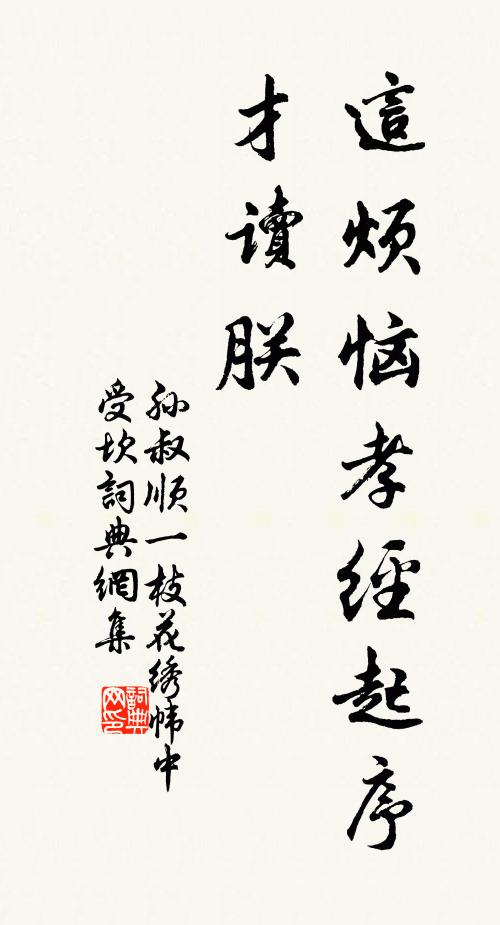 這烦恼孝經起序
才讀朕
孙叔顺一枝花绣帏中
受坎詞典網集
詞典网印